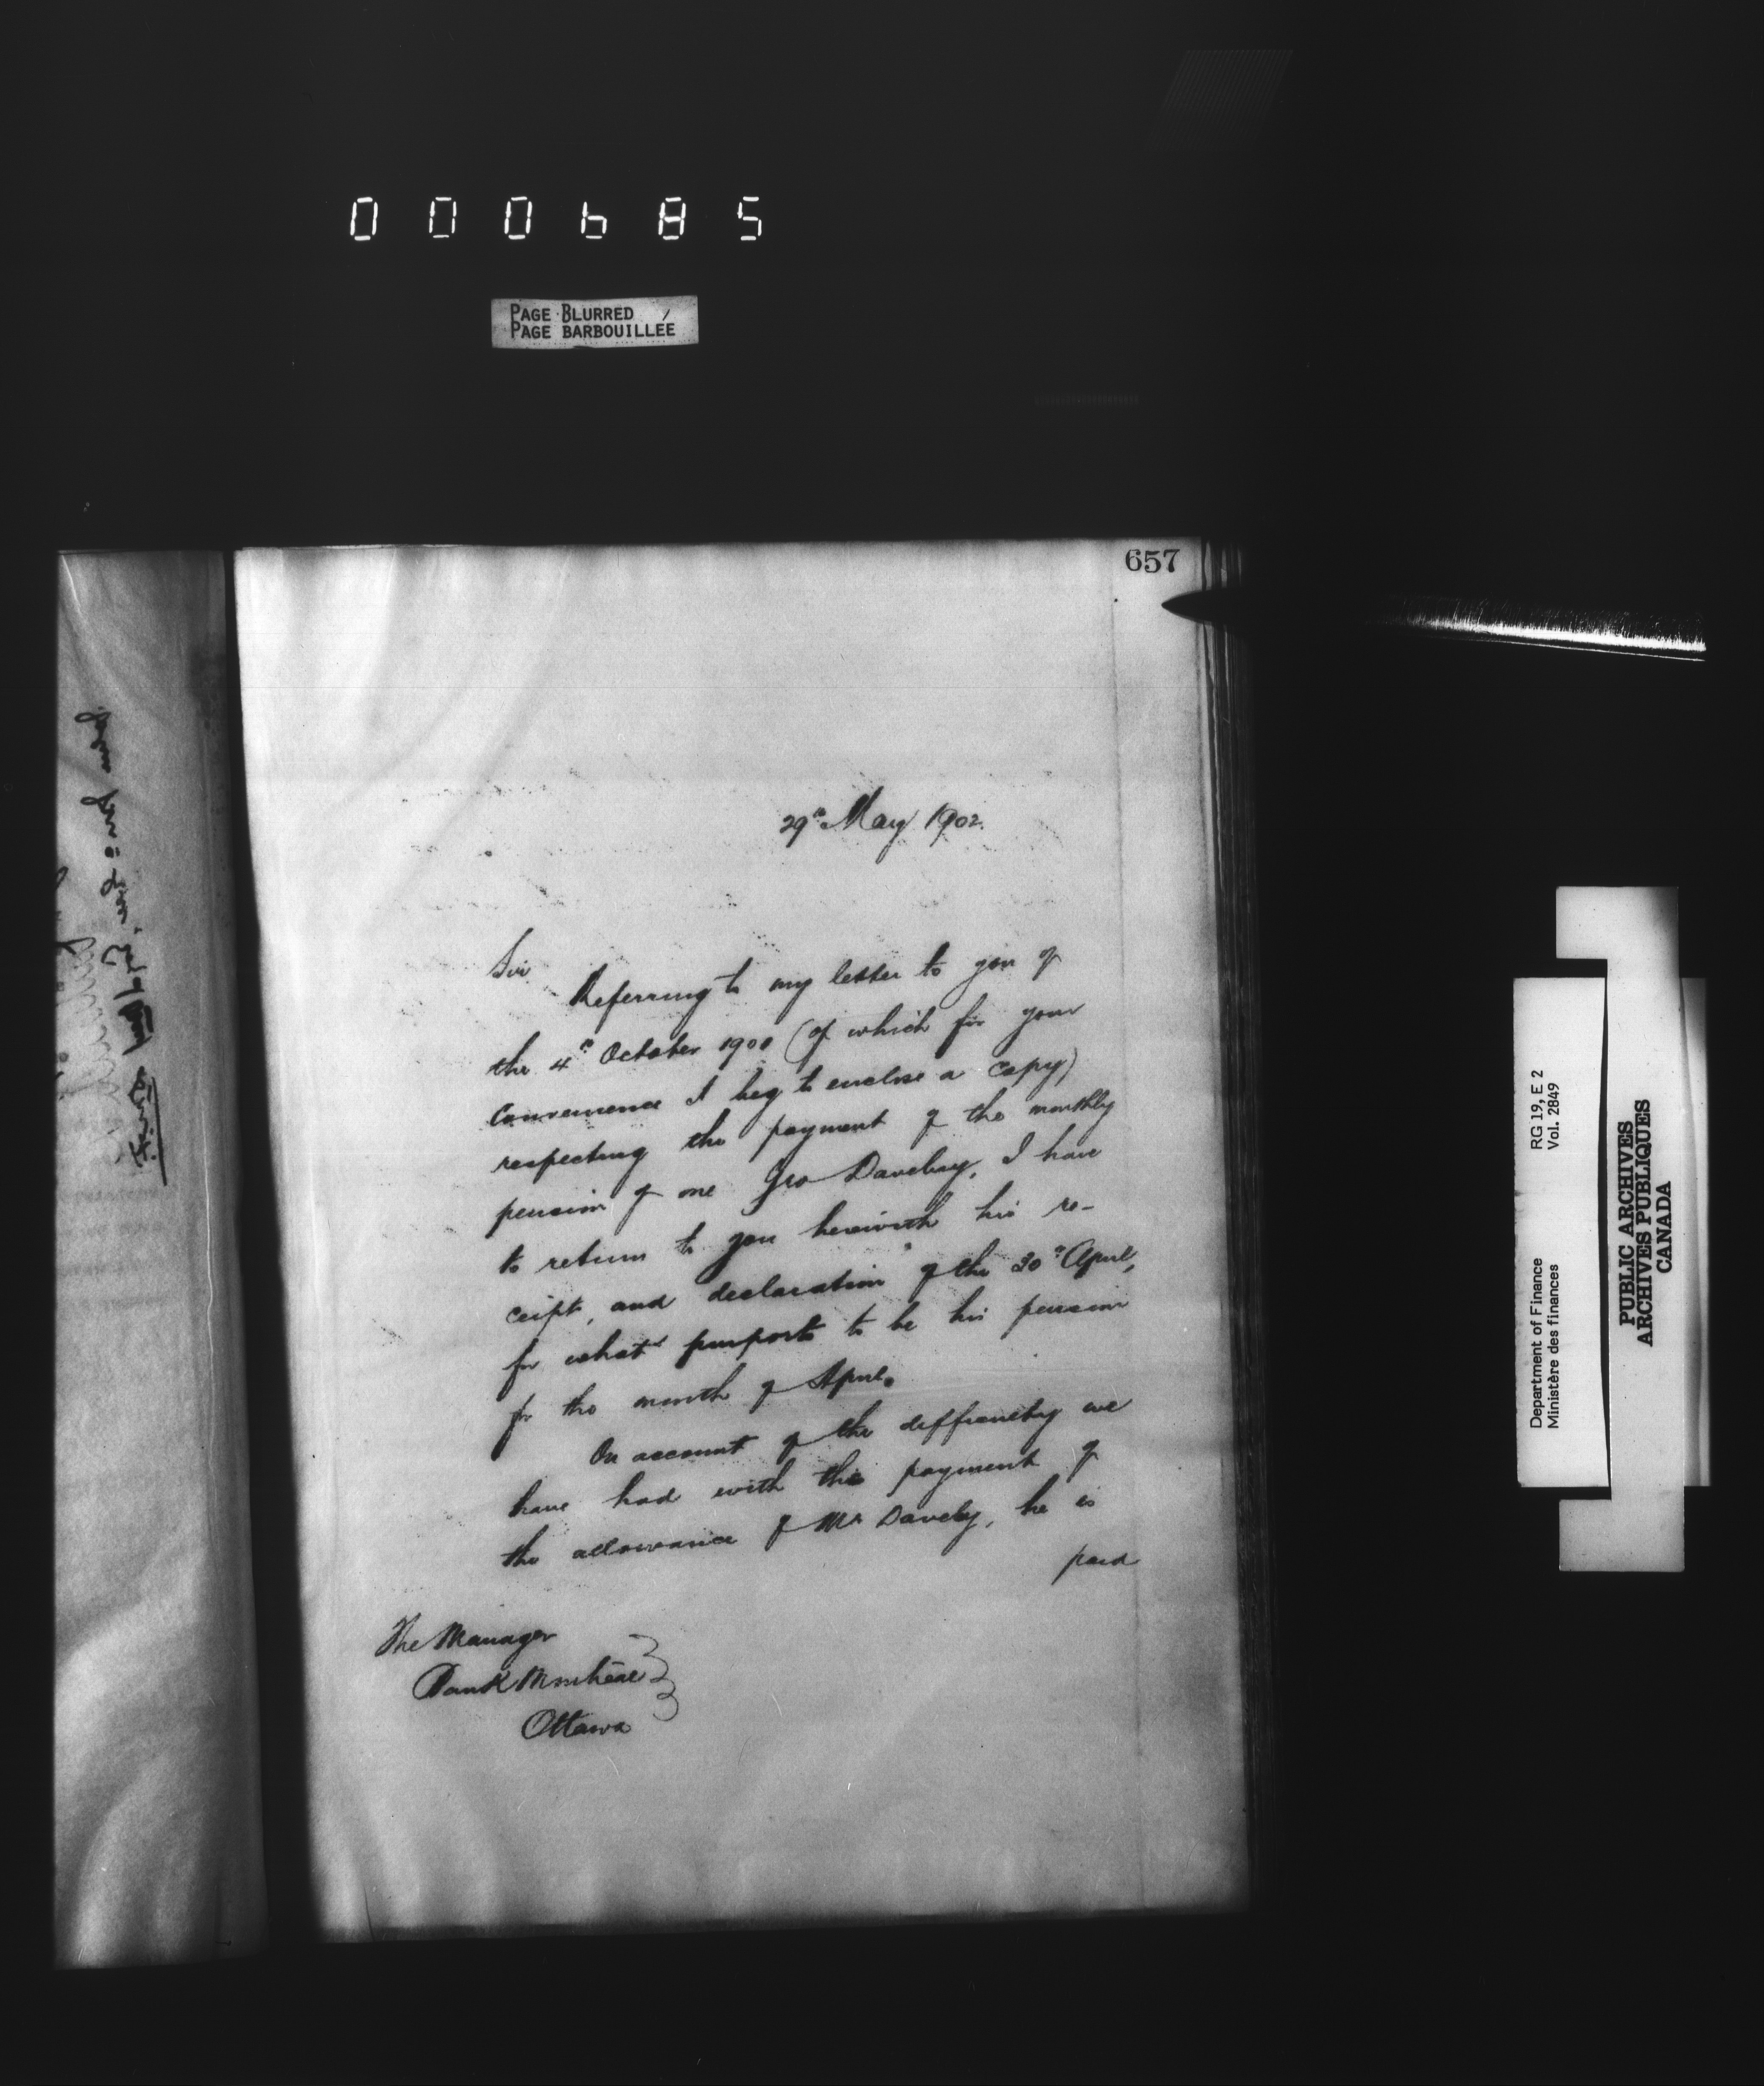 000685
PAGE BLURRED
PAGE BARBOUILLÉE
657
29th May 1902.
Sir
Referring to my letter to you of
the 4th October 1900 (of which for your
convenience I beg to enclose a copy)
respecting the payment of the monthly
pension of one Geo Daveluy, I have
to return to you herewith his re-
ceipt, and declaration of the 30th April,
for what purports to be his pension
for the month of April.
On account of the difficulty we
have had with the payment of
the allowance of Mr Davely, he is
paid
The Manager
Bank Montreal
Ottawa
Department of Finance RG 19, E 2
Ministère des finances Vol. 2849
PUBLIC ARCHIVES
ARCHIVES PUBLIQUES
CANADA